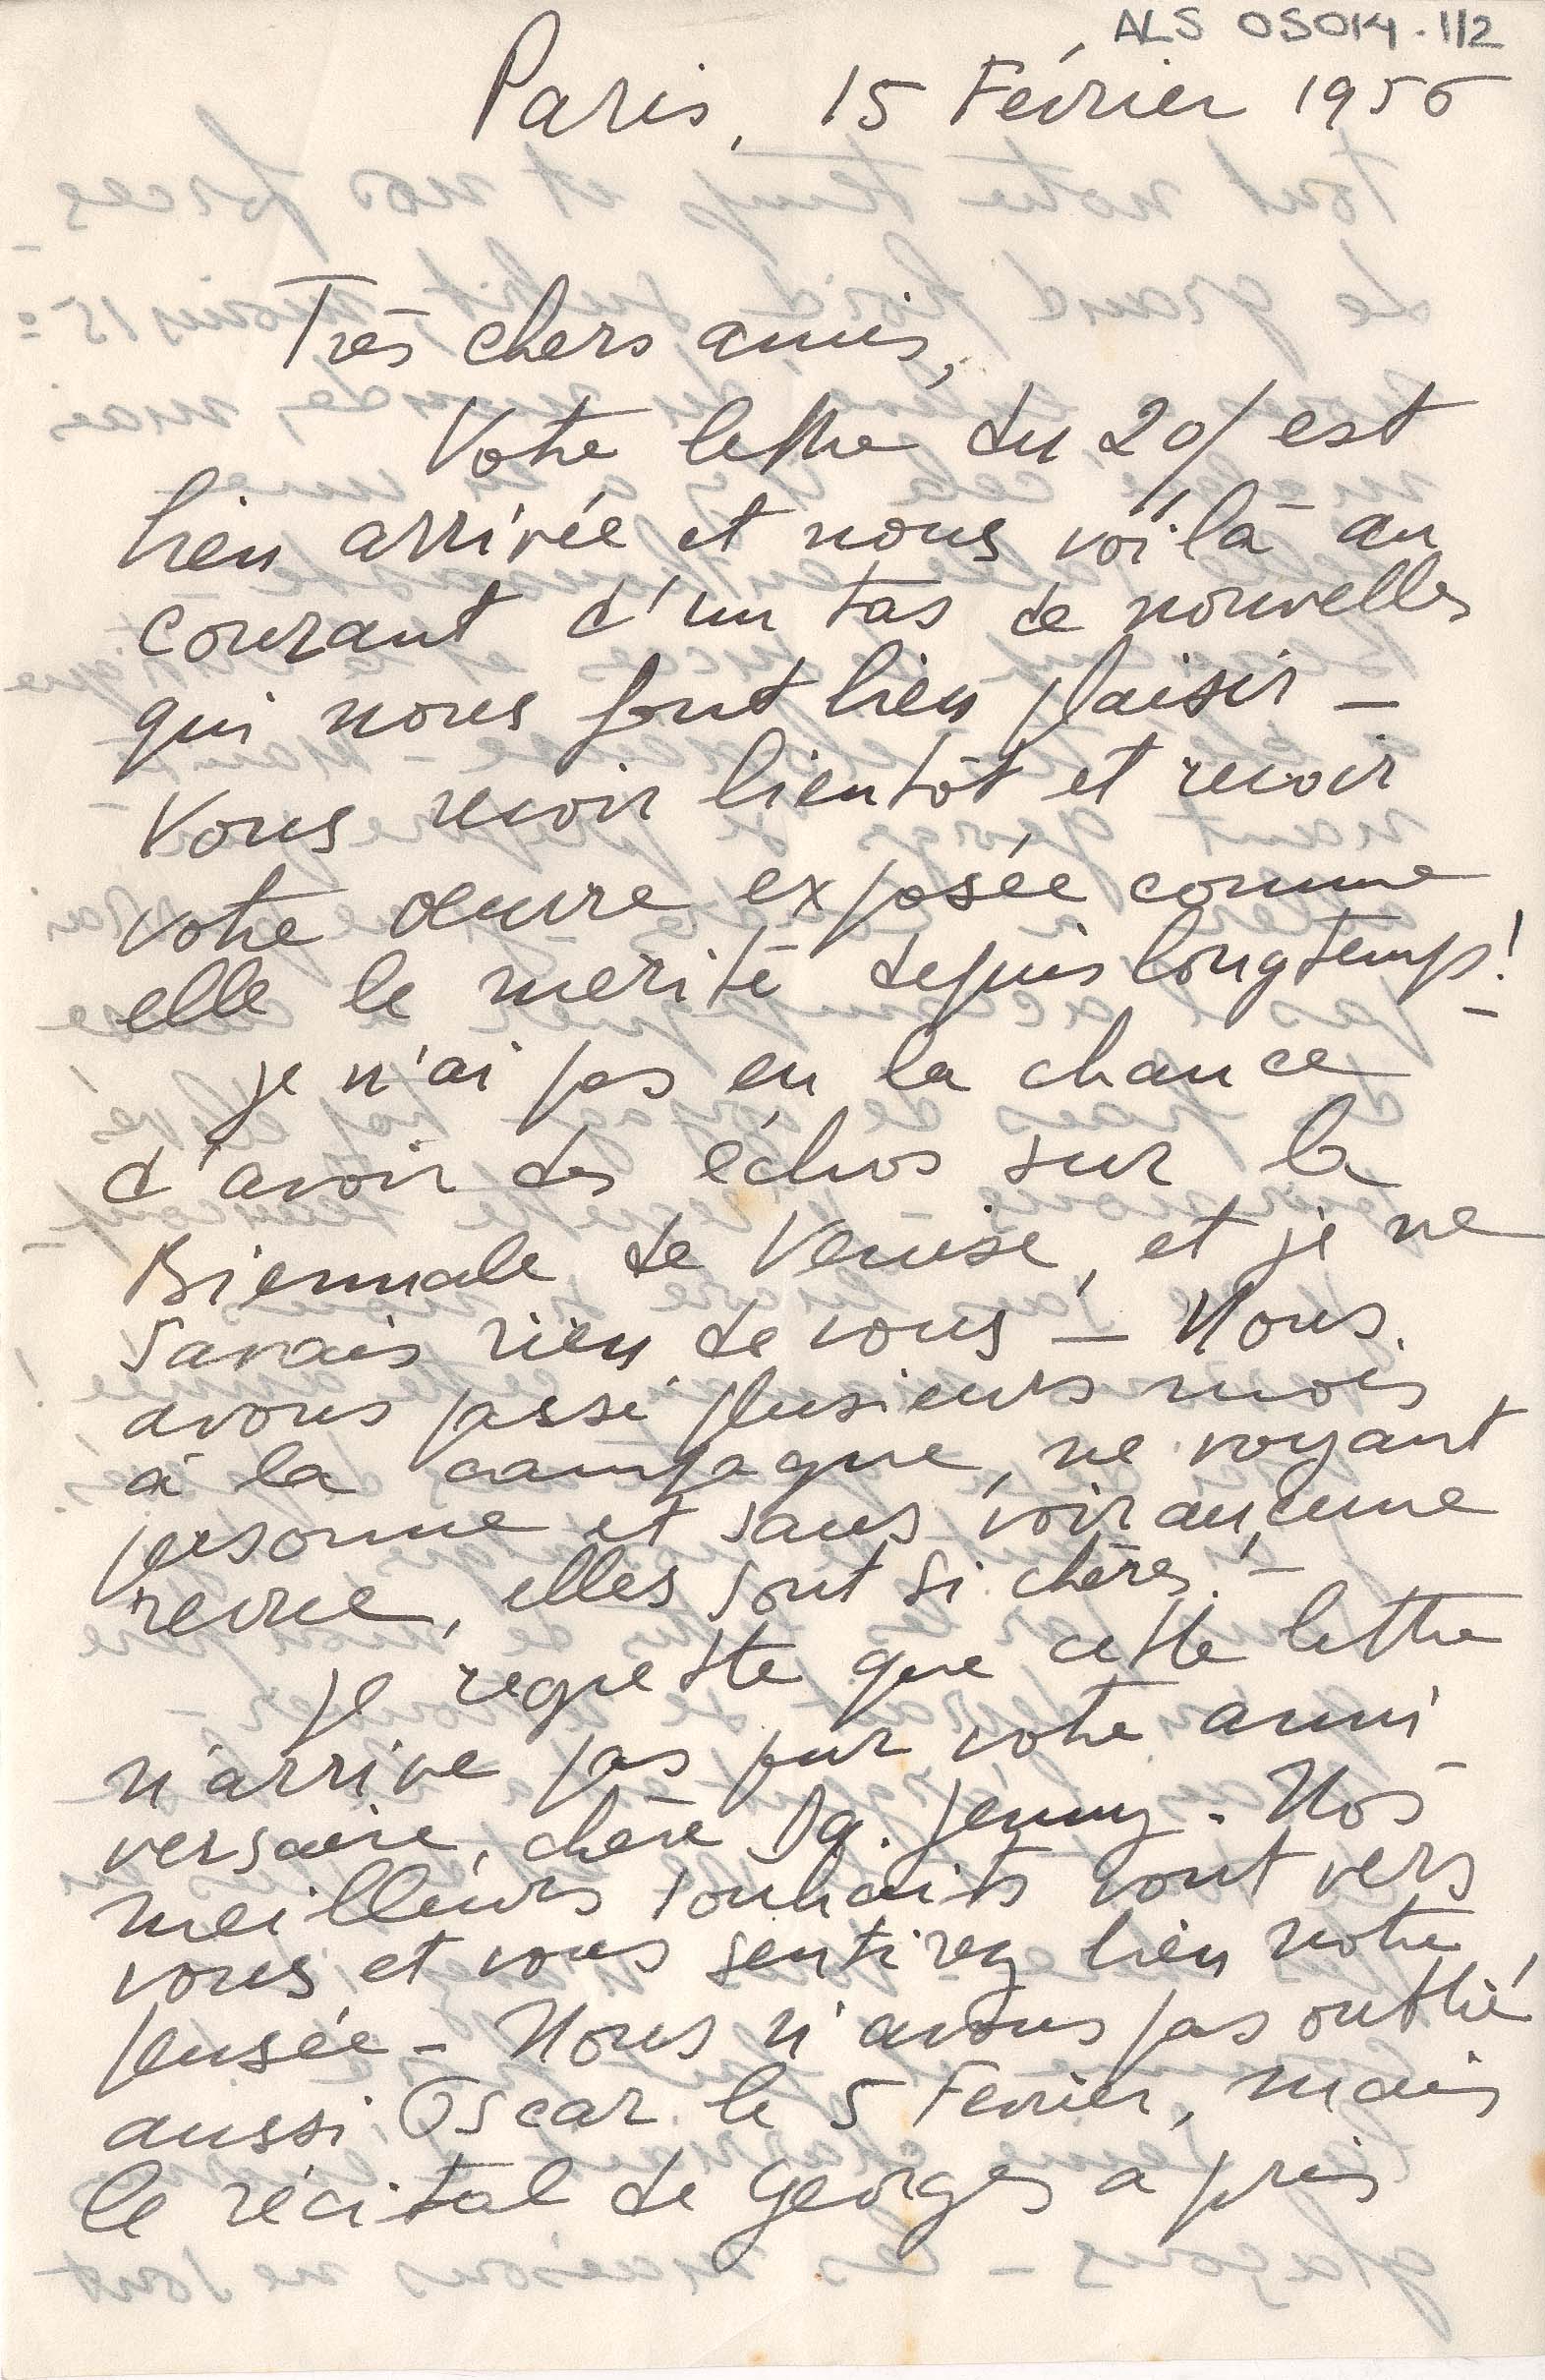 ALS 05014.1|2
Paris, 15 Février 1956
Très chers amis,
Votre lettre du 20/ est
bien arrivée et nous voilà au
courant d'un tas de nouvelles
qui nous font bien plaisir –
Vous revoir bientôt et revoir
votre œuvre exposée comme
elle le merite depuis longtemps! –
je n'ai pas eu la chance
d'avoir des échos sur la
Biennale de Venise, et je ne
savais rien de vous – Nous
avons passé plusieurs mois
à la campagne, ne voyant
personne et sans voir aucune
revue, elles sont si chères! –
je regrette que cette lettre
n'arrive pas pour votre anni-
versaire, chère Sg. Jenny. Nos
meilleurs souhaits vont vers
vous et vous sentirez bien notre
pensée – Nous n'avons pas oublié
aussi Oscar le 5 Fevrier, mais
le récital de Georges a pris